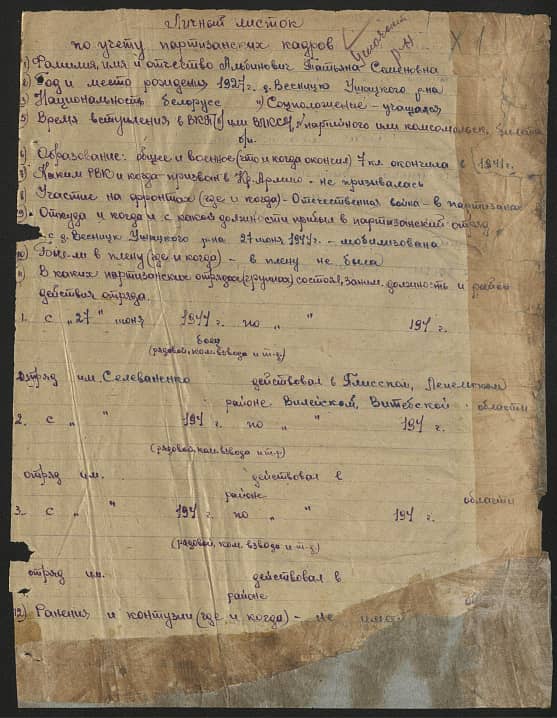 Личный листок
по учету партизанских кадров
Ушачский р-н
1) Фамилия, имя и отчество Альбинович Татьяна Семеновна
2) Год и место рождения 1927 г. д. Весницк Ушацкого р-на
3) Национальность белорус 4) Соцположение - учащаяся
5) Время вступления в ВКП(б) или ВЛКСМ, № партийного или комсомольск. билета
б/п.
6) Образование: общее и военное (что и когда окончил) 7 кл. окончила в 1941 г.
7) Каким РВК и когда призван в Кр. Армию - не призывалась
8) Участие на фронтах (где и когда) - Отечественная война - в партизанах
9) Откуда и когда и с какой должности прибыл в партизанский отряд
с д. Весницк Ушацкого р-на 27 июня 1944 г. - мобилизована
10) Был ли в плену (где и когда) - в плену не была
11) В каких партизанских отрядах (группах) состоял, заним. должность и район
действия отряда.
1. с „27" июня 1944 г. по „ " 194 г.
боец
(рядовой, ком. взвода и т.д.)
Отряд им. Селеваненко действовал в Плисском, Лепельском
районе Вилейской, Витебской области
2. с „ " 194 г. по „ " 194 г.
(рядовой, ком. взвода и т.д.)
отряд им. действовал в
районе области
3. с „ " 194 г. по „ " 194 г.
(рядовой, ком. взвода и т.д.)
отряд им. действовал в
районе об
12) Ранения и контузии (где и когда) - не име